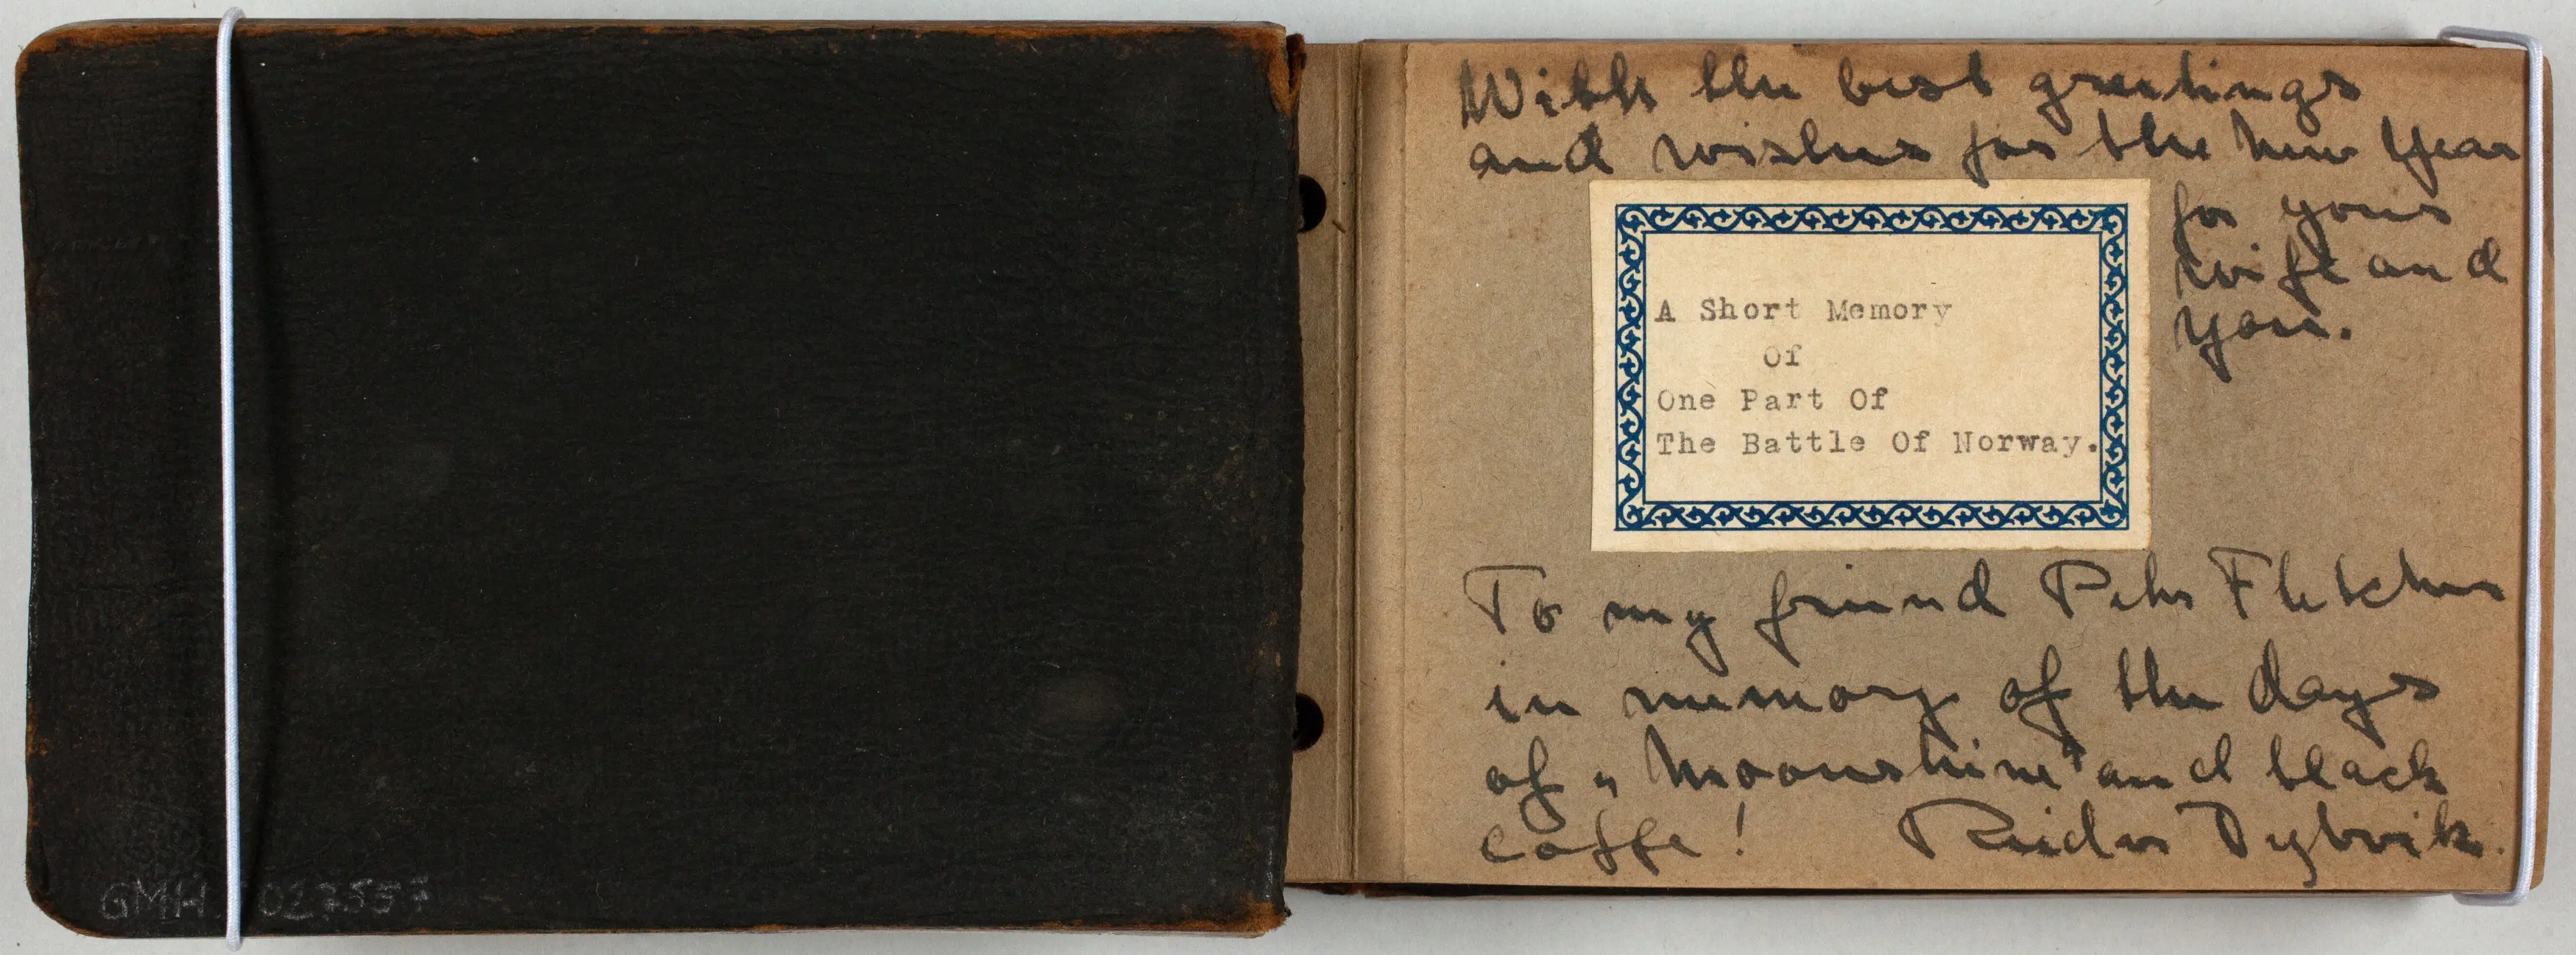 With the best greetings
and wishes for the new Year
for your
wife and
you.
A Short Memory
Of
One Part Of
The Battle Of Norway.
To my friend Peter Fletcher
in memory of the days
of „Moonshine" and black
coffe! Reidar Dybvik.
GMH 027557